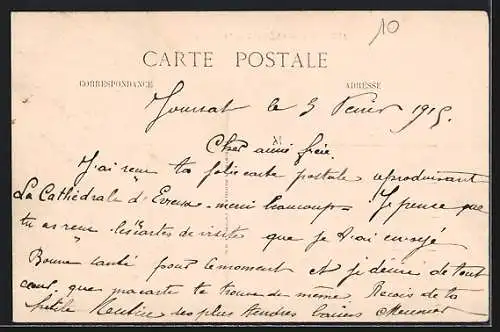 10
CARTE POSTALE
CORRESPONDANCE ADRESSE
le 3 Février 1915.
M
Cher ami
J'ai reçu ta jolie carte postale reproduisant
La Cathédrale d'Evreux - merci beaucoup - Je pense que
tu as reçu les cartes de visite que je t'ai envoyé
Bonne santé pour le moment et je désire de tout
cœur que ma carte te trouve de même. Reçois de ta
petite les plus tendres baisers